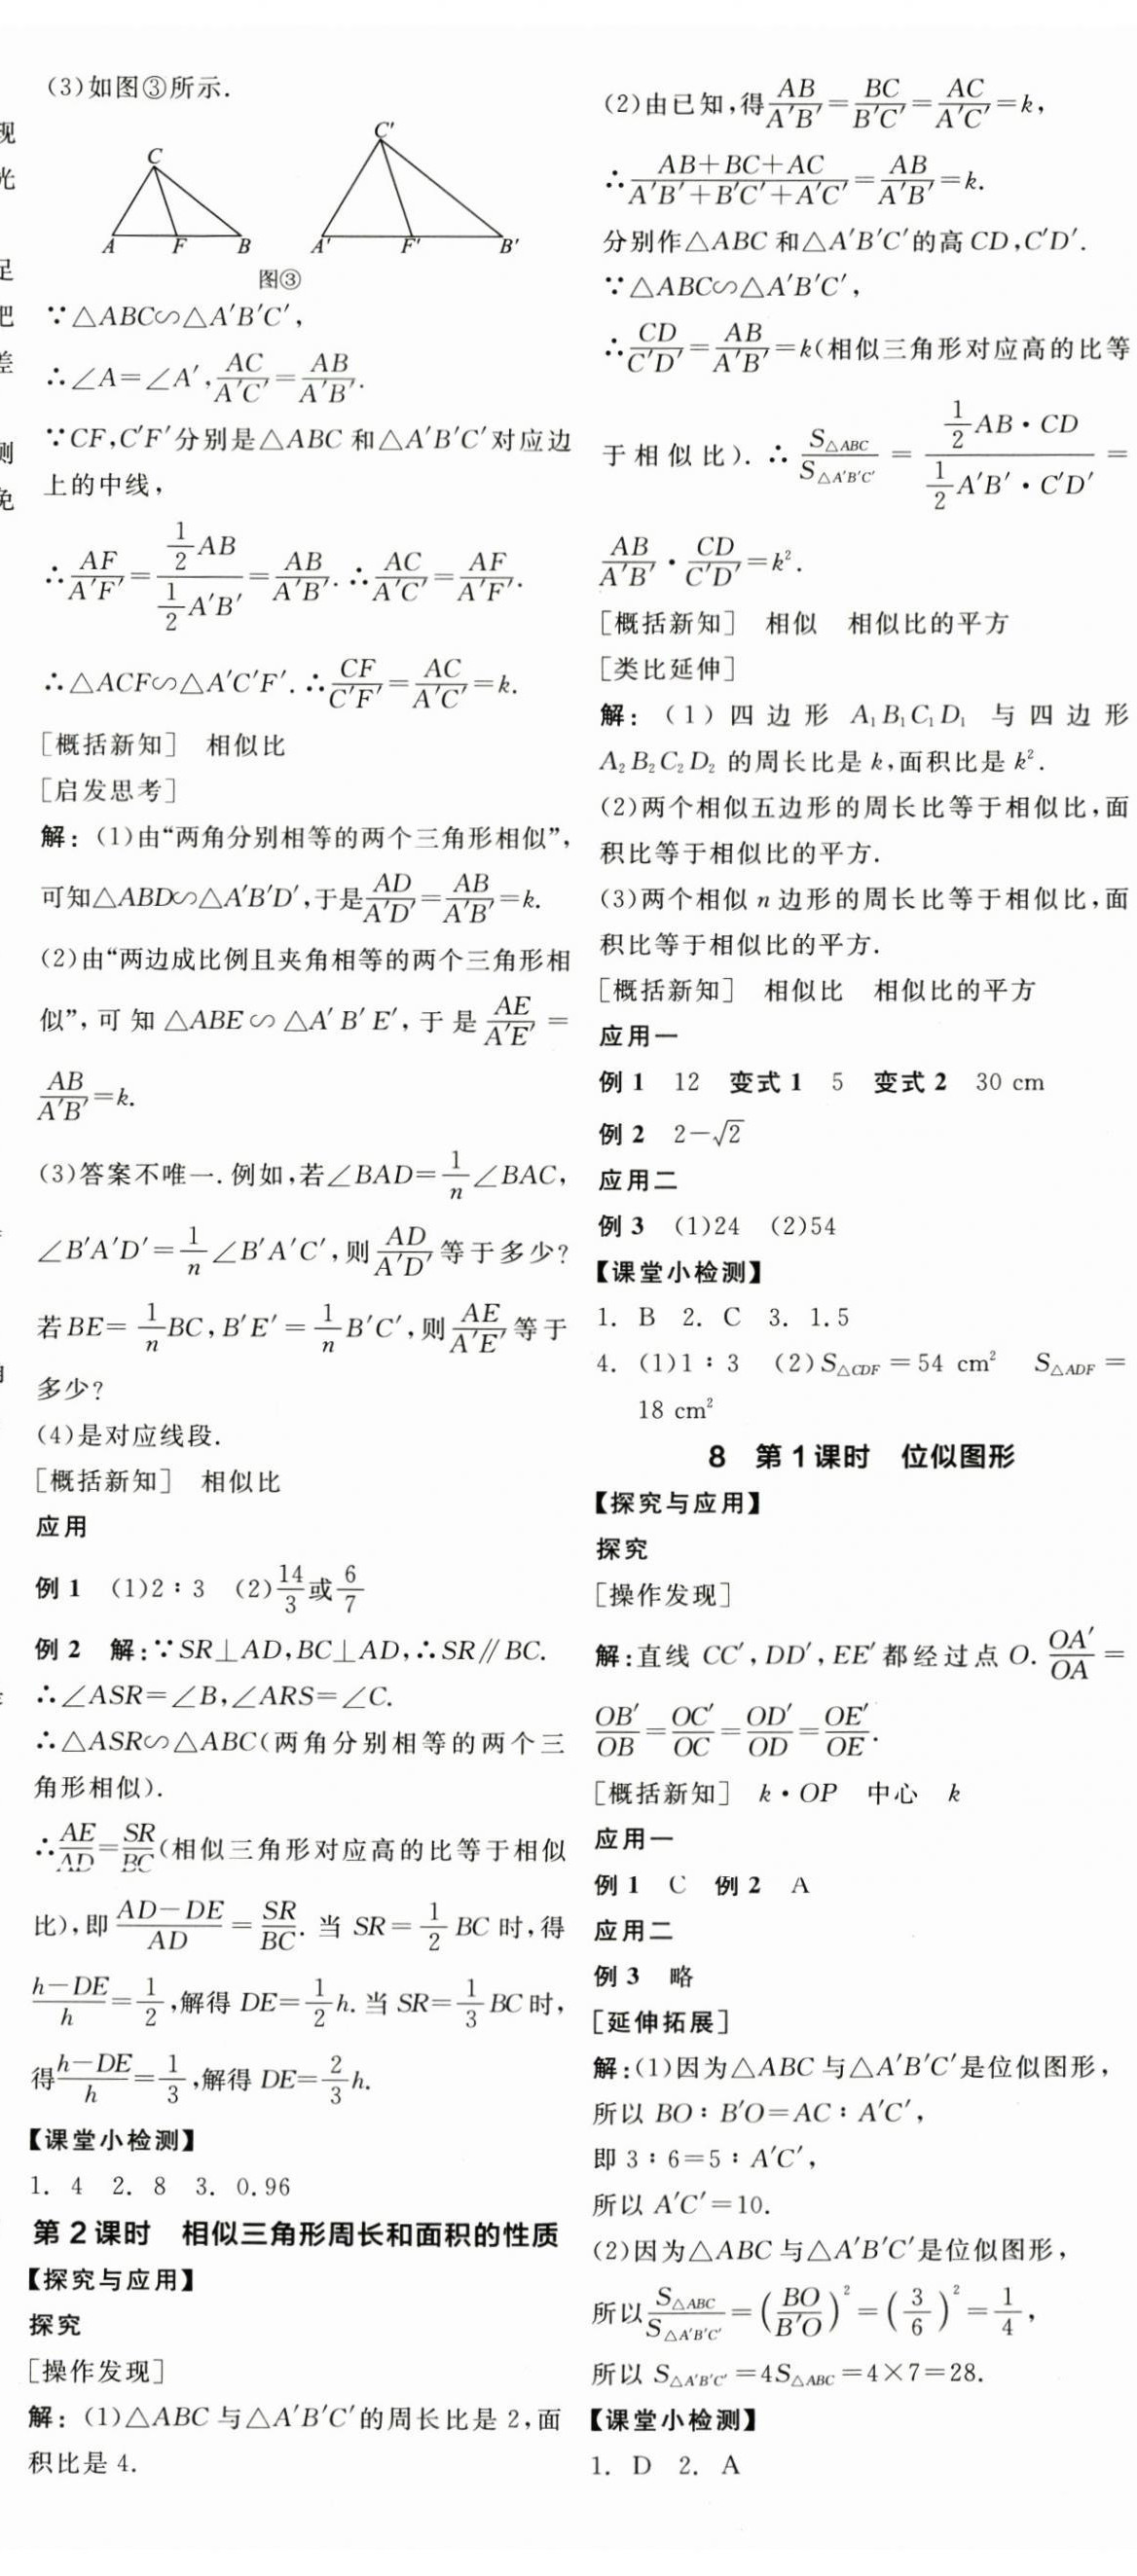 (3)如图③所示.
C
A F B
C′
A′ F′ B′
图③
∵△ABC∽△A′B′C′,
∴∠A=∠A′,AC/A′C′=AB/A′B′.
∵CF,C′F′分别是△ABC和△A′B′C′对应边
上的中线,
∴AF/A′F′=(1/2 AB)/(1/2 A′B′)=AB/A′B′.∴AC/A′C′=AF/A′F′.
∴△ACF∽△A′C′F′.∴CF/C′F′=AC/A′C′=k.
[概括新知] 相似比
[启发思考]
解:(1)由“两角分别相等的两个三角形相似”,
可知△ABD∽△A′B′D′,于是AD/A′D′=AB/A′B′=k.
(2)由“两边成比例且夹角相等的两个三角形相
似”,可知△ABE∽△A′B′E′,于是AE/A′E′=
AB/A′B′=k.
(3)答案不唯一.例如,若∠BAD=1/n∠BAC,
∠B′A′D′=1/n∠B′A′C′,则AD/A′D′等于多少?
若BE=1/n BC,B′E′=1/n B′C′,则AE/A′E′等于
多少?
(4)是对应线段.
[概括新知] 相似比
应用
例1 (1)2∶3 (2)14/3或6/7
例2 解:∵SR⊥AD,BC⊥AD,∴SR∥BC.
∴∠ASR=∠B,∠ARS=∠C.
∴△ASR∽△ABC(两角分别相等的两个三
角形相似).
∴AE/AD=SR/BC(相似三角形对应高的比等于相似
比),即(AD−DE)/AD=SR/BC.当SR=1/2 BC时,得
(h−DE)/h=1/2,解得DE=1/2 h.当SR=1/3 BC时,
得(h−DE)/h=1/3,解得DE=2/3 h.
【课堂小检测】
1. 4 2. 8 3. 0.96
第2课时 相似三角形周长和面积的性质
【探究与应用】
探究
[操作发现]
解:(1)△ABC与△A′B′C′的周长比是2,面
积比是4.
(2)由已知,得AB/A′B′=BC/B′C′=AC/A′C′=k,
∴(AB+BC+AC)/(A′B′+B′C′+A′C′)=AB/A′B′=k.
分别作△ABC和△A′B′C′的高CD,C′D′.
∵△ABC∽△A′B′C′,
∴CD/C′D′=AB/A′B′=k(相似三角形对应高的比等
于相似比).∴S△ABC/S△A′B′C′=(1/2 AB·CD)/(1/2 A′B′·C′D′)=
AB/A′B′·CD/C′D′=k².
[概括新知] 相似 相似比的平方
[类比延伸]
解:(1)四边形A₁B₁C₁D₁与四边形
A₂B₂C₂D₂的周长比是k,面积比是k².
(2)两个相似五边形的周长比等于相似比,面
积比等于相似比的平方.
(3)两个相似n边形的周长比等于相似比,面
积比等于相似比的平方.
[概括新知] 相似比 相似比的平方
应用一
例1 12 变式1 5 变式2 30 cm
例2 2−√2
应用二
例3 (1)24 (2)54
【课堂小检测】
1. B 2. C 3. 1.5
4. (1)1∶3 (2)S△CDF=54 cm² S△ADF=
18 cm²
8 第1课时 位似图形
【探究与应用】
探究
[操作发现]
解:直线CC′,DD′,EE′都经过点O.OA′/OA=
OB′/OB=OC′/OC=OD′/OD=OE′/OE.
[概括新知] k·OP 中心 k
应用一
例1 C 例2 A
应用二
例3 略
[延伸拓展]
解:(1)因为△ABC与△A′B′C′是位似图形,
所以BO∶B′O=AC∶A′C′,
即3∶6=5∶A′C′,
所以A′C′=10.
(2)因为△ABC与△A′B′C′是位似图形,
所以S△ABC/S△A′B′C′=(BO/B′O)²=(3/6)²=1/4,
所以S△A′B′C′=4S△ABC=4×7=28.
【课堂小检测】
1. D 2. A